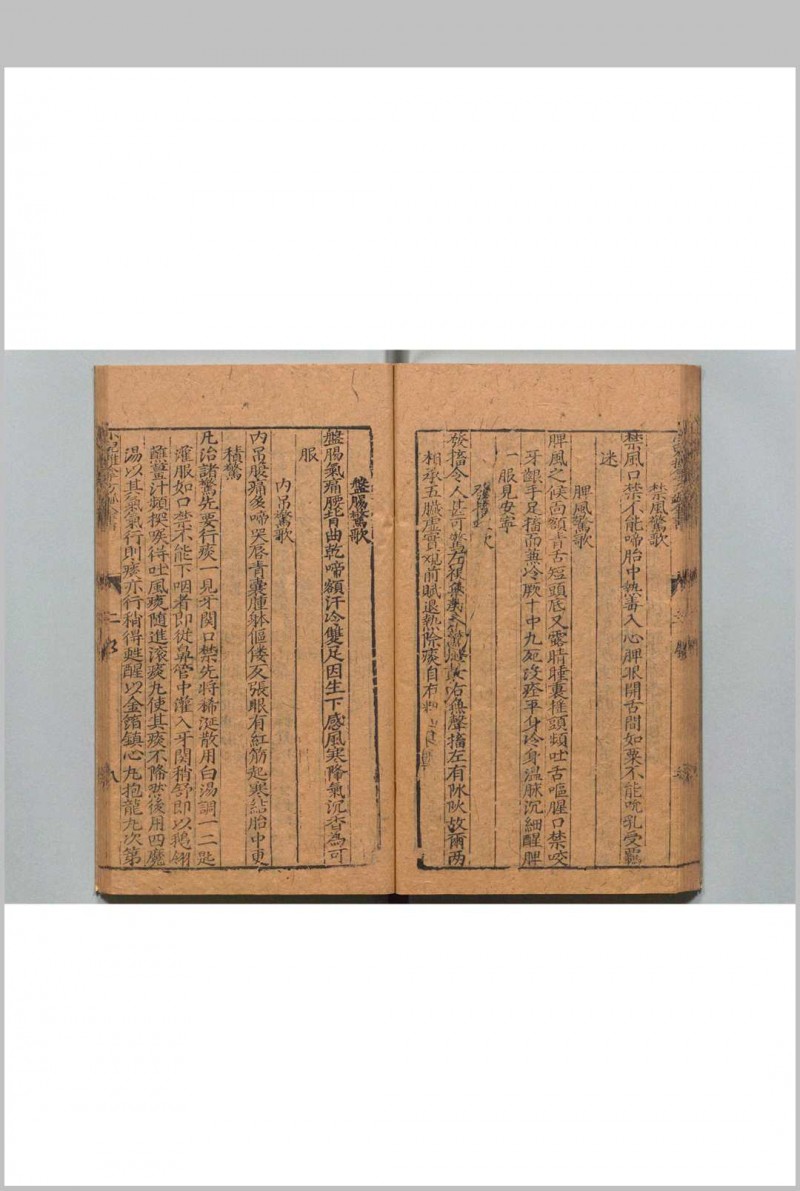 禁風驚歌
禁風口禁不能啼胎中熱毒入心脾眼開舌間如粟不能吮乳受羈
迷
脾風驚歌
脾風之候面額青舌短頭底又露睛睡裏搖頭頻吐舌嘔腥口禁咬
牙齦手足搐而兼冷厥十中九死沒疼平身冷身溫脉沉細醒脾
一服見安寧
發搐令人甚可驚左視無聲右有聲搐左有故爾兩
相承五臟虛實觀前賦退熱除痰自有
盤腸驚歌
盤腸氣痛腰背曲乾啼額汗冷雙足因生下感風寒降氣沉香為可
服
内吊驚歌
内吊腹痛多啼哭唇青囊腫躰傴僂反張眼有紅筋起寒結胎中更
積驚
凢治諸驚先要行痰一見牙関口禁先將稀涎散用白湯調一二匙
灌服如口禁不能下咽者即從鼻管中灌入牙関稍舒即以鵝翎
蘸薑汁頻探喉得吐風痰随進滾痰丸使其痰不降然後用四魔
湯以其氣氣行則痰亦行稍得甦醒以金箔鎮心丸抱龍丸次第